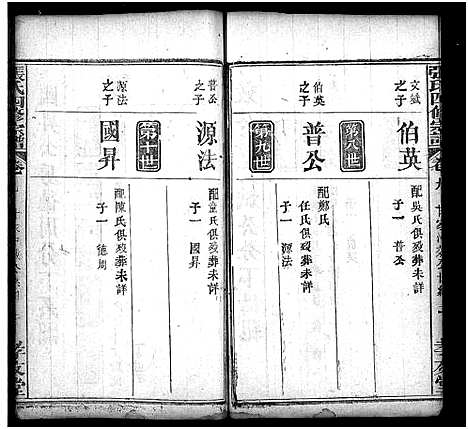 張氏四修宗譜
孝友堂
文斌
之子
伯英
配吳氏俱歿葬未詳
子一 普公
第八世
伯英
之子
普公
配鄭氏
任氏俱歿葬未詳
子一 源法
第九世
普公
之子
源法
配童氏俱歿葬未詳
子一 國昇
源法
之子
國昇
配陳氏俱歿葬未詳
子一 德周
張氏四修宗譜
孝友堂